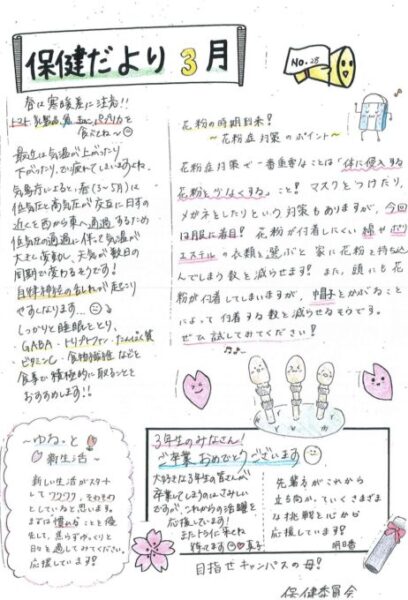 保健だより3月
No.28
春は寒暖差に注意!!
トマト、乳製品、魚、
を
食べてね～
最近は気温が上がったり
下がったりして疲れてしまいますよね。
気象庁によると、春(3～5月)は
低気圧と高気圧が交互に日本の
近くを西から東へ通過するため
低気圧の通過に伴って気温が
大きく変動し、天気が数日の
周期で変わるそうです!
自律神経の乱れが起こり
やすくなります…
しっかりと睡眠をとり、
GABA・トリプトファン・たんぱく質
・ビタミンC・食物繊維などを
食事で積極的に取ることを
おすすめします!!
花粉の時期到来!
～花粉症対策のポイント～
花粉症対策で一番重要なことは「体に侵入する
花粉を少なくする」こと! マスクをつけたり、
メガネをしたりという対策もありますが、今回
は服に着目! 花粉が付着しにくい綿やポリ
エステルの衣類を選ぶと家に花粉を持ち込
んでしまう数を減らせます! また、頭にも花
粉が付着してしまいますが、帽子をかぶること
によって付着する数を減らせるそうです。
ぜひ試してみてください!
～ゆるっと
新生活～
新しい生活がスタート
してワクワク、そわそわ
としていると思います。
まずは慣れることを優
先して、焦らずゆっくりと
日々を過ごしてみてください。
応援しています!
3年生のみなさん!
ご卒業おめでとうございます
大好きな3年生の皆さんが
卒業してしまうのはさみしい
ですが、これからの活躍を
応援しています!
また
待ってます
先輩方がこれから
立ち向かっていくさまざま
な挑戦を心から
応援しています!
明日香
目指せキャンパスの母!
保健委員会